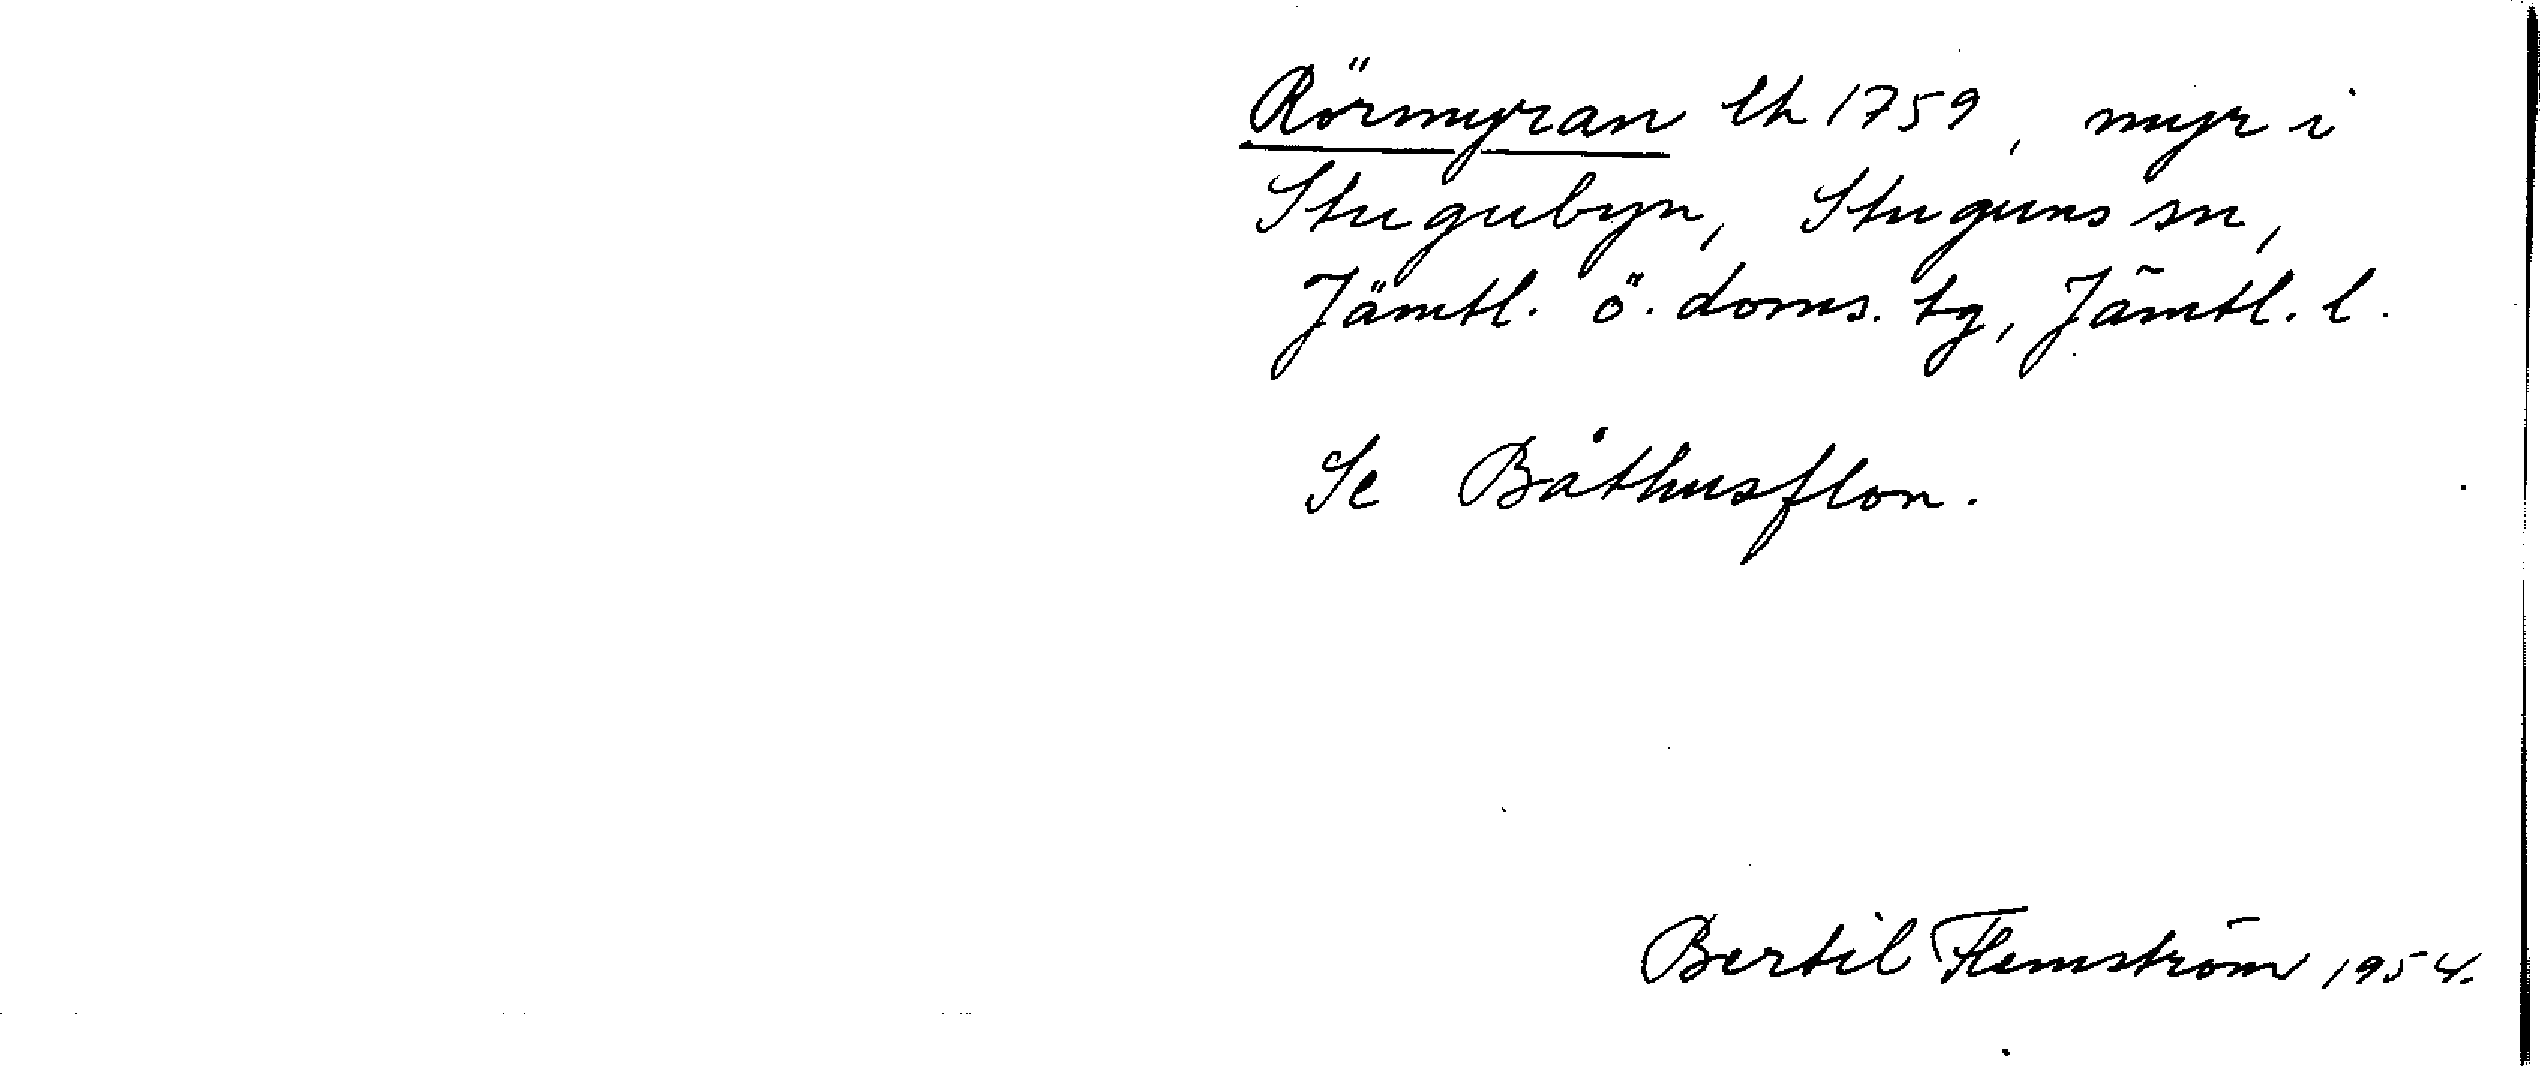 Rörmyran lh 1759, myr i
Stugubyn, Stuguns sn,
Jämtl. ö. doms. tg, Jämtl. l.
Se Båthusflon.
Bertil Flemström 1954.